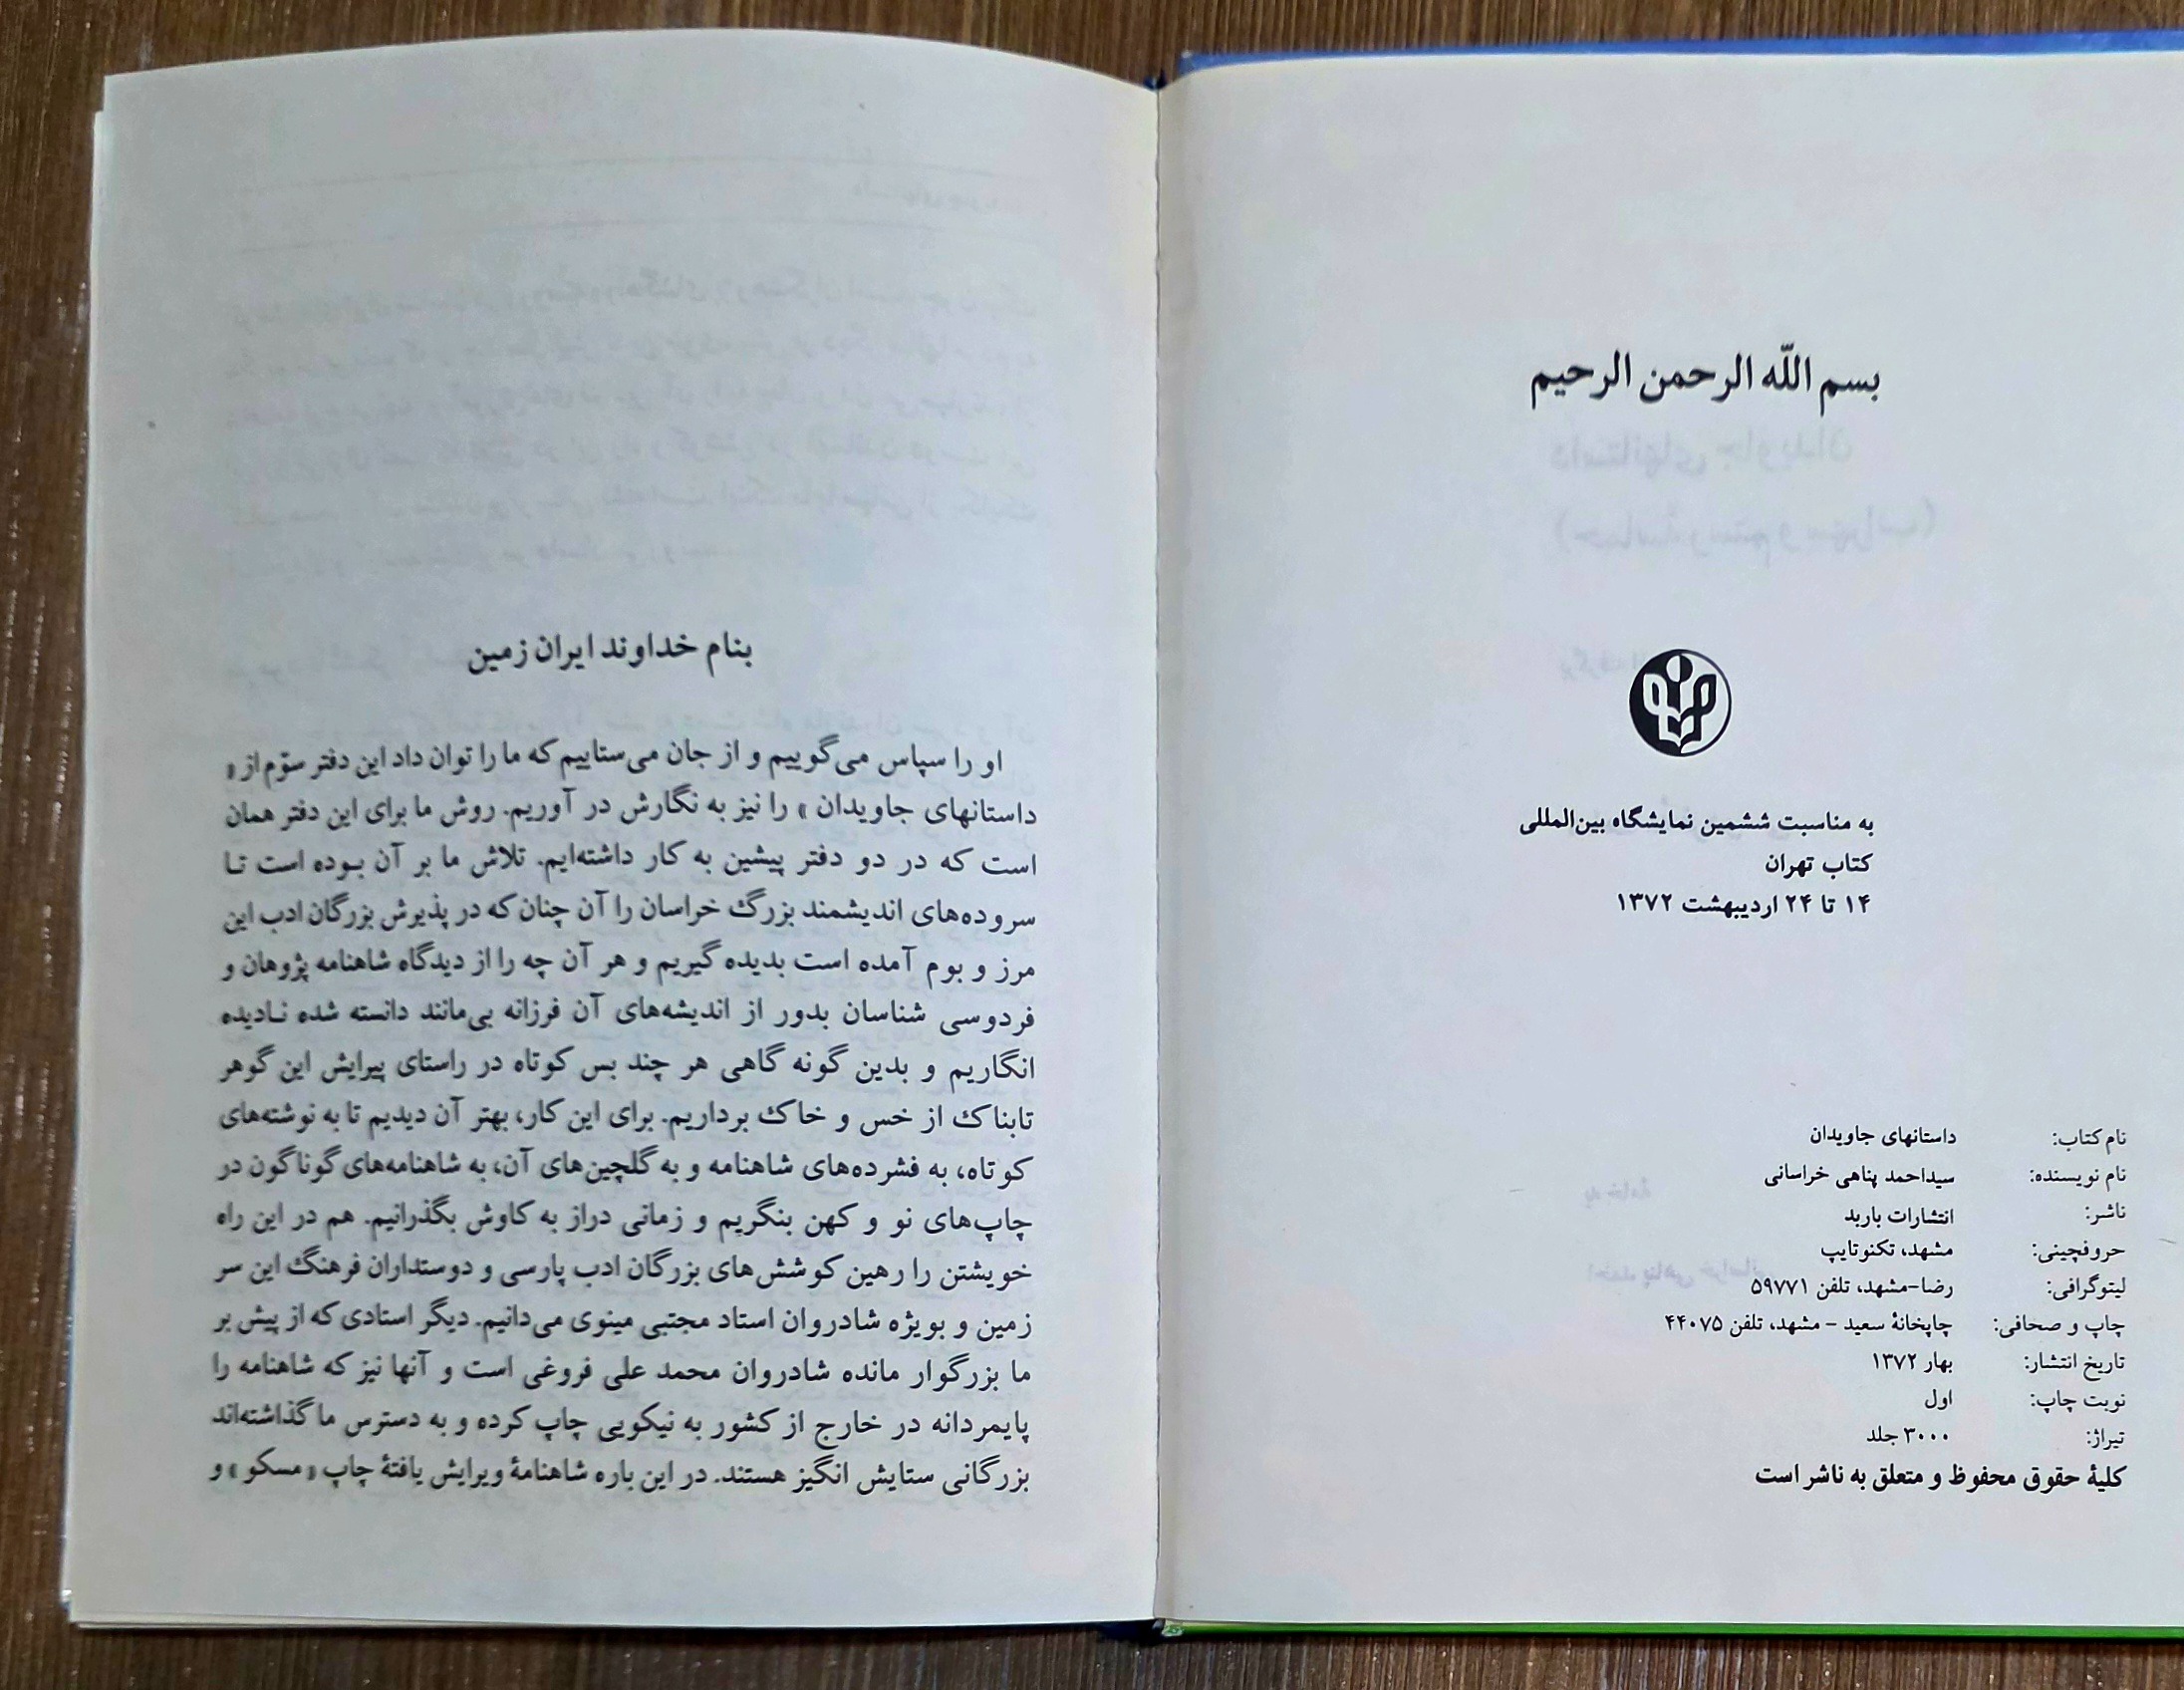 بسم اللّه الرحمن الرحیم
به مناسبت ششمین نمایشگاه بین‌المللی
کتاب تهران
۱۴ تا ۲۴ اردیبهشت ۱۳۷۲
نام کتاب: داستانهای جاویدان
نام نویسنده: سیداحمد پناهی خراسانی
ناشر: انتشارات باربد
حروفچینی: مشهد، تکنوتایپ
لیتوگرافی: رضا-مشهد، تلفن ۵۹۷۷۱
چاپ و صحافی: چاپخانهٔ سعید - مشهد، تلفن ۴۴۰۷۵
تاریخ انتشار: بهار ۱۳۷۲
نوبت چاپ: اول
تیراژ: ۳۰۰۰ جلد
کلیهٔ حقوق محفوظ و متعلق به ناشر است
بنام خداوند ایران زمین
او را سپاس می‌گوییم و از جان می‌ستاییم که ما را توان داد این دفتر سوّم از «
داستانهای جاویدان » را نیز به نگارش در آوریم. روش ما برای این دفتر همان
است که در دو دفتر پیشین به کار داشته‌ایم. تلاش ما بر آن بوده است تا
سروده‌های اندیشمند بزرگ خراسان را آن چنان که در پذیرش بزرگان ادب این
مرز و بوم آمده است بدیده گیریم و هر آن چه را از دیدگاه شاهنامه پژوهان و
فردوسی شناسان بدور از اندیشه‌های آن فرزانه بی‌مانند دانسته شده نادیده
انگاریم و بدین گونه گاهی هر چند بس کوتاه در راستای پیرایش این گوهر
تابناک از خس و خاک برداریم. برای این کار، بهتر آن دیدیم تا به نوشته‌های
کوتاه، به فشرده‌های شاهنامه و به گلچین‌های آن، به شاهنامه‌های گوناگون در
چاپ‌های نو و کهن بنگریم و زمانی دراز به کاوش بگذرانیم. هم در این راه
خویشتن را رهین کوشش‌های بزرگان ادب پارسی و دوستداران فرهنگ این سر
زمین و بویژه شادروان استاد مجتبی مینوی می‌دانیم. دیگر استادی که از پیش بر
ما بزرگوار مانده شادروان محمد علی فروغی است و آنها نیز که شاهنامه را
پایمردانه در خارج از کشور به نیکویی چاپ کرده و به دسترس ما گذاشته‌اند
بزرگانی ستایش انگیز هستند. در این باره شاهنامهٔ ویرایش یافتهٔ چاپ «مسکو » و